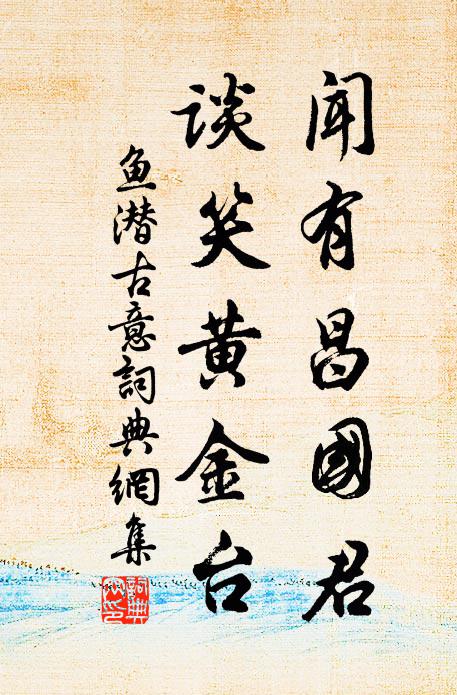 闻有昌國君
谈笑黄金台
鱼潜古意詞典網集